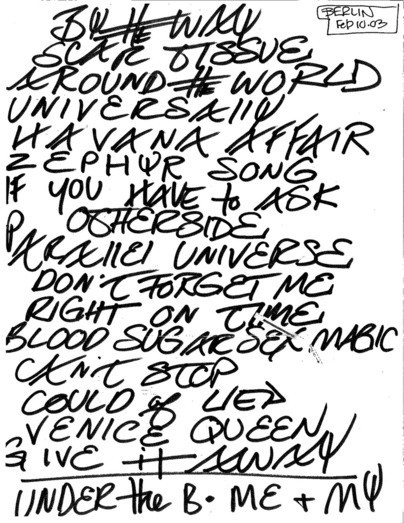 BERLIN
FEB 10.03
BY THE WAY
SCAR TISSUE
AROUND THE WORLD
UNIVERSALLY
HAVANA AFFAIR
ZEPHYR SONG
IF YOU HAVE to ASK
OTHERSIDE
PARALLEL UNIVERSE
DON'T FORGET ME
RIGHT ON TIME
BLOOD SUGAR SEX MAGIC
CAN'T STOP
COULD of LIED
VENICE QUEEN
GIVE it AWAY
UNDER the B. ME + MY